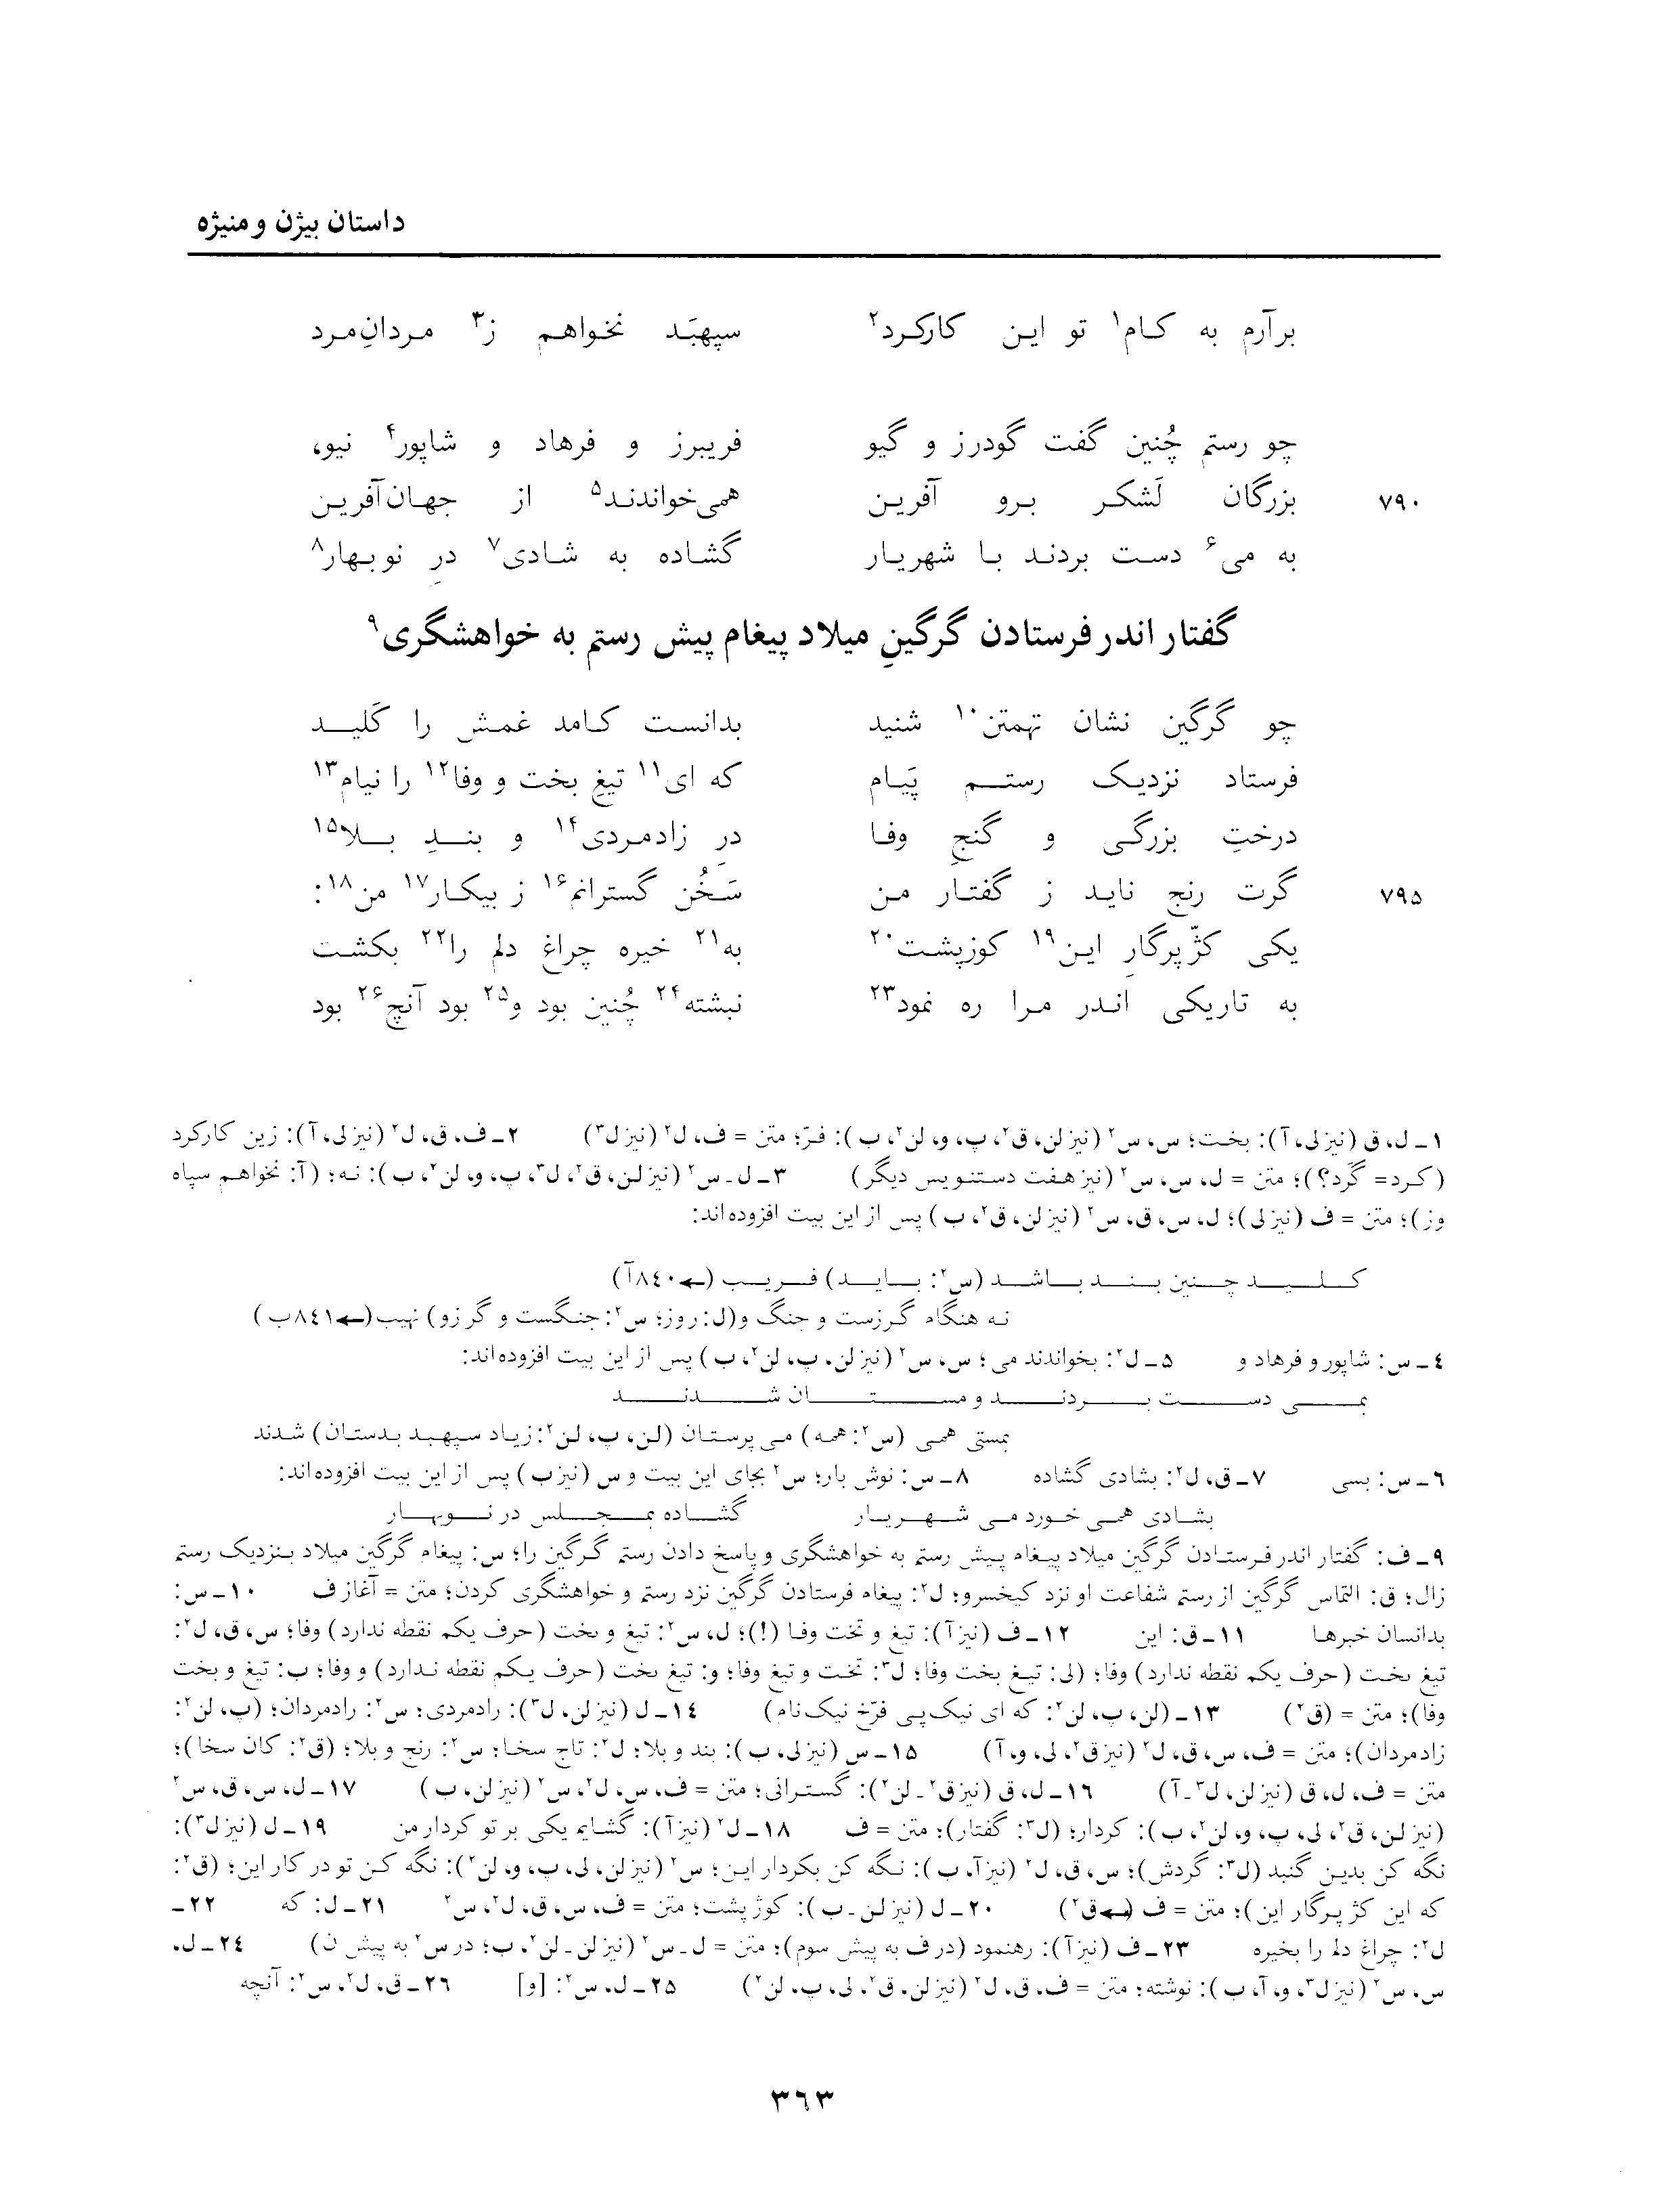 داستان بیژن و منیژه
برآرم به کام۱ تو این کارکرد۲ سپهبَد نخواهم ز۳ مردانِ‌مرد
چو رستم چُنین گفت گودرز و گیو فریبرز و فرهاد و شاپور۴ نیو،
۷۹۰ بزرگان لَشکر برو آفرین همی‌خواندند۵ از جهان‌آفرین
به می۶ دست بردند با شهریار گشاده به شادی۷ درِ نوبهار۸
گفتار اندر فرستادن گرگینِ میلاد پیغام پیش رستم به خواهشگری۹
چو گرگین نشان تهمتن۱۰ شنید بدانست کامد غمش را کَلید
فرستاد نزدیک رستم پَیام که ای۱۱ تیغِ بخت و وفا۱۲ را نیام۱۳
درختِ بزرگی و گنجِ وفا درِ زادمردی۱۴ و بندِ بلا۱۵
۷۹۵ گرت رنج ناید ز گفتار من سَخُن گسترانم۱۶ ز بیکار۱۷ من۱۸:
یکی کژّپرگارِ این۱۹ کوزپشت۲۰ به۲۱ خیره چراغِ دلم را۲۲ بکشت
به تاریکی اندر مرا ره نمود۲۳ نبشته۲۴ چُنین بود و۲۵ بود آنچ۲۶ بود
۱ـ ل، ق (نیز لی، آ): بخت؛ س، س۲ (نیز لن، ق۲، پ، و، لن۲، ب): فرّ؛ متن = ف، ل۲ (نیز ل۳) ۲ـ ف، ق، ل۲ (نیز لی، آ): زین کارکرد
(کرد= گَرد؟)؛ متن = ل، س، س۲ (نیز هفت دستنویس دیگر) ۳ـ ل ـ س۲ (نیز لن، ق۲، ل۳، پ، و، لن۲، ب): نه؛ (آ: نخواهم سپاه
وز)؛ متن = ف (نیز لی)؛ ل، س، ق، س۲ (نیز لن، ق۲، ب) پس از این بیت افزوده‌اند:
کلید چنین بند باشد (س۲: باید) فریب (←۸۴۰آ)
نه هنگام گرزست و جنگ و(ل: روز؛ س۲: جنگست و گرزو) نهیب(←۸۴۱ب)
۴ـ س: شاپور و فرهاد و ۵ـ ل۲: بخواندند می؛ س، س۲ (نیز لن، پ، لن۲، ب) پس از این بیت افزوده‌اند:
بمی دست بردند و مستان شدند
بمستی همی (س۲: همه) می پرستان (لن، پ، لن۲: زیاد سپهبد بدستان) شدند
۶ـ س: بسی ۷ـ ق، ل۲: بشادی گشاده ۸ـ س: نوش بار؛ س۲ بجای این بیت و س (نیز ب) پس از این بیت افزوده‌اند:
بشادی همی خورد می شهریار گشاده بمجلس در نوبهار
۹ـ ف: گفتار اندر فرستادن گرگین میلاد پیغام پیش رستم به خواهشگری و پاسخ دادن رستم گرگین را؛ س: پیغام گرگین میلاد بنزدیک رستم
زال؛ ق: التماس گرگین از رستم شفاعت او نزد کیخسرو؛ ل۲: پیغام فرستادن گرگین نزد رستم و خواهشگری کردن؛ متن = آغاز ف ۱۰ـ س:
بدانسان خبرها ۱۱ـ ق: این ۱۲ـ ف (نیز آ): تیغ و تخت وفا (!)؛ ل، س۲: تیغ و بخت (حرف یکم نقطه ندارد) وفا؛ س، ق، ل۲:
تیغ بخت (حرف یکم نقطه ندارد) وفا؛ (لی: تیغ بخت وفا؛ ل۳: تخت و تیغ وفا؛ و: تیغ بخت (حرف یکم نقطه ندارد) و وفا؛ ب: تیغ و بخت
وفا)؛ متن = (ق۲) ۱۳ـ (لن، پ، لن۲: که ای نیک‌پی فرّخ نیک‌نام) ۱۴ـ ل (نیز لن، ل۳): رادمردی؛ س۲: رادمردان؛ (پ، لن۲:
زادمردان)؛ متن = ف، س، ق، ل۲ (نیز ق۲، لی، و، آ) ۱۵ـ س (نیز لی، ب): بند و بلا؛ ل۲: تاج سخا؛ س۲: رنج و بلا؛ (ق۲: کان سخا)؛
متن = ف، ل، ق (نیز لن، ل۳ـ آ) ۱۶ـ ل، ق (نیز ق۲ـ لن۲): گسترانی؛ متن = ف، س، ل۲، س۲ (نیز لن، ب) ۱۷ـ ل، س، ق، س۲
(نیز لن، ق۲، لی، پ، و، لن۲، ب): کردار؛ (ل۳: گفتار)؛ متن = ف ۱۸ـ ل۲ (نیز آ): گشایم یکی بر تو کردار من ۱۹ـ ل (نیز ل۳):
نگه کن بدین گنبد (ل۳: گردش)؛ س، ق، ل۲ (نیز آ، ب): نگه کن بکردار این؛ س۲ (نیز لن، لی، پ، و، لن۲): نگه کن تو در کار این؛ (ق۲:
که این کژ پرگار این)؛ متن = ف (←ق۲) ۲۰ـ ل (نیز لن ـ ب): کوژ پشت؛ متن = ف، س، ق، ل۲، س۲ ۲۱ـ ل: که ۲۲ـ
ل۲: چراغ دلم را بخیره ۲۳ـ ف (نیز آ): رهنمود (در ف به پیش سوم)؛ متن = ل ـ س۲ (نیز لن ـ لن۲، ب؛ در س۲ به پیش ن) ۲۴ـ ل،
س، س۲ (نیز ل۳، و، آ، ب): نوشته؛ متن = ف، ق، ل۲ (نیز لن، ق۲، لی، پ، لن۲) ۲۵ـ ل، س۲: [و] ۲۶ـ ق، ل۲، س۲: آنچه
۳۶۳